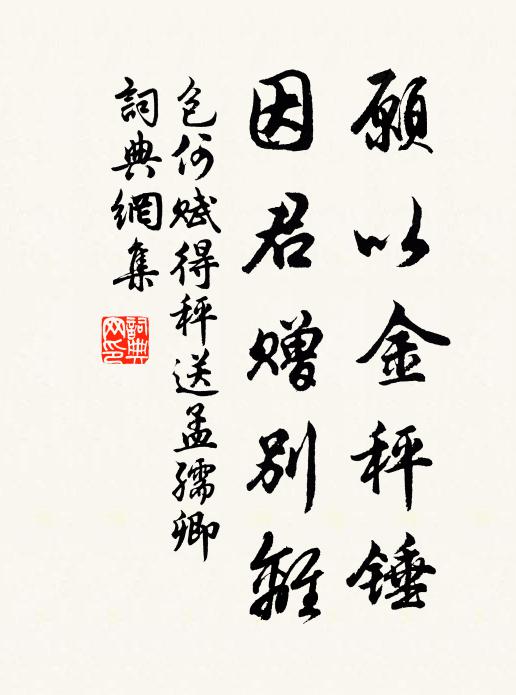 願以金秤錘
因君贈別離
包何賦得秤送孟孺卿
詞典網集
詞典網印